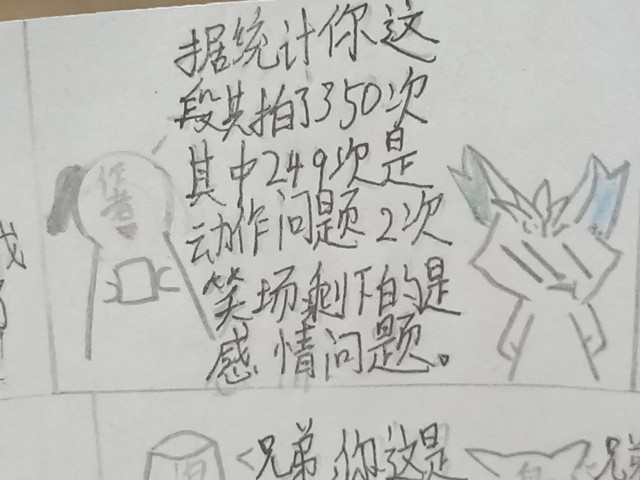 据统计你这
段共拍了350次
其中249次是
动作问题2次
笑场剩下的是
感情问题。
作者
兄弟,你这是
兄弟